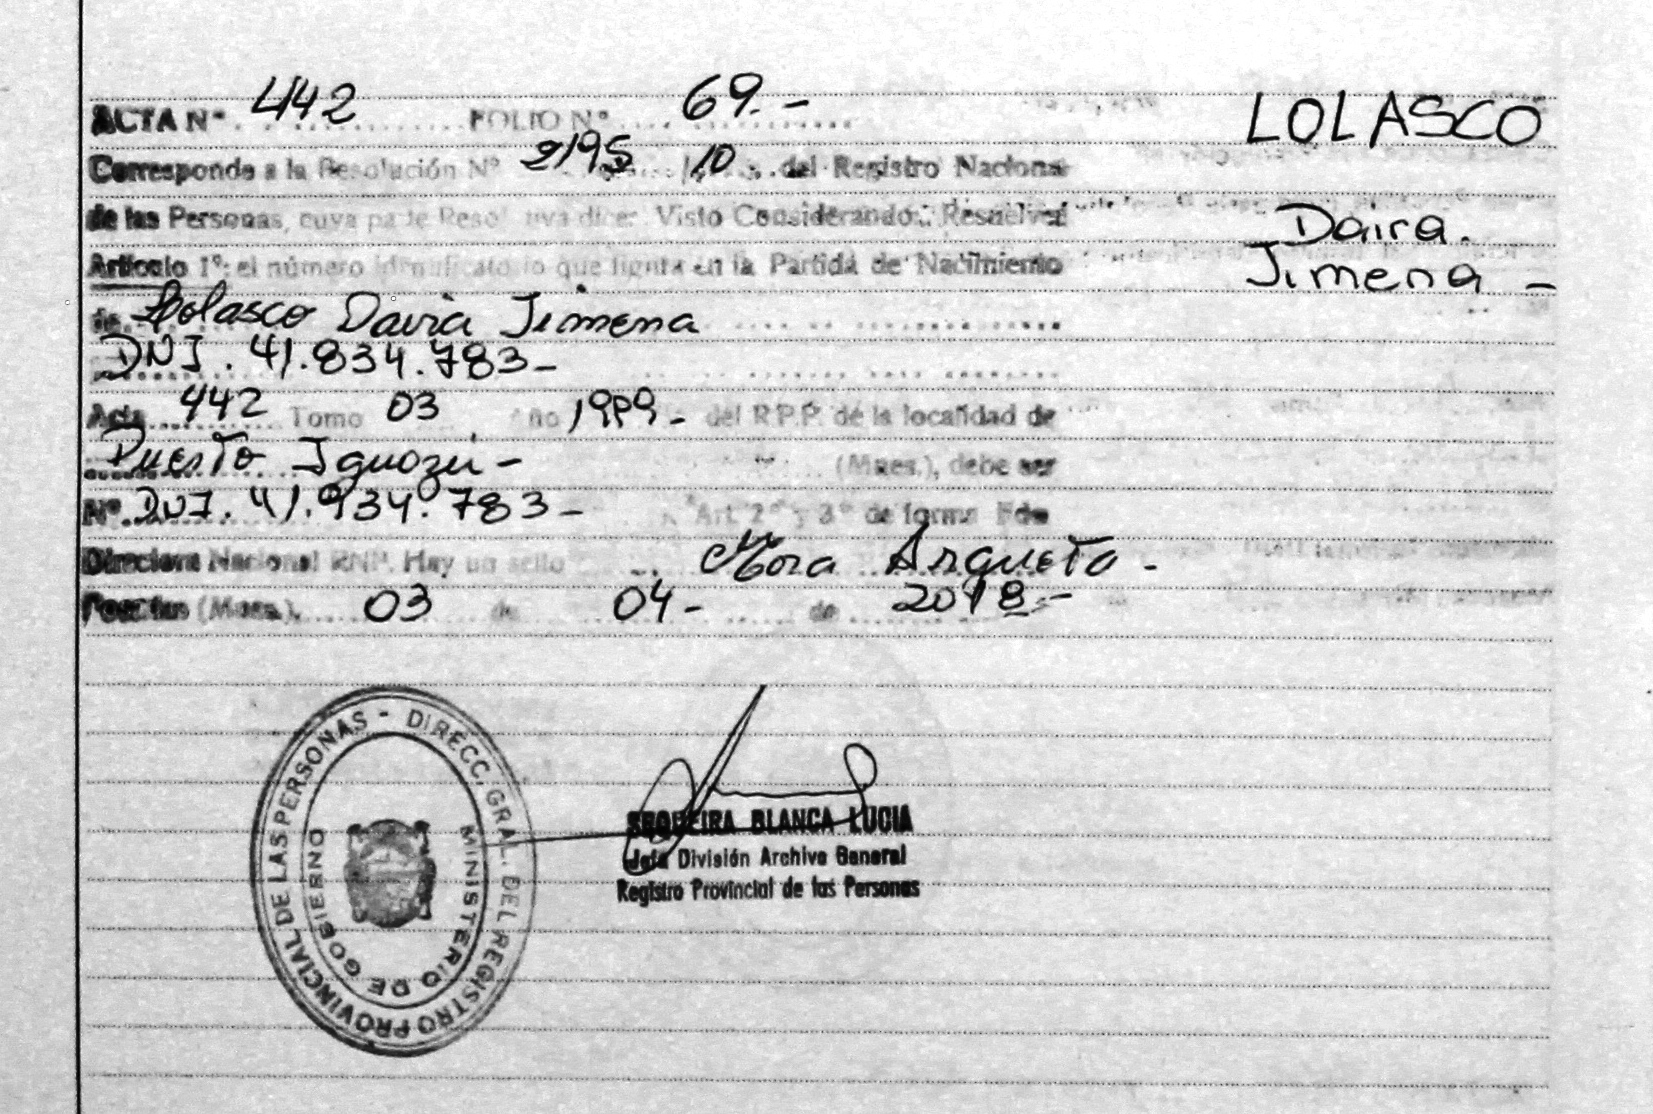 ACTA Nº 442 FOLIO Nº 69.-
Corresponde a la Resolución Nº 2195 /10 del Registro Nacional
de las Personas, cuya parte Resolutiva dice: Visto Considerando: Resuelve:
Artículo 1º: el número identificatorio que figura en la Partida de Nacimiento
de Lolasco Daira Jimena
DNI. 41.834.783-
Acta 442 Tomo 03 Año 1999- del R.P.P. de la localidad de
Puerto Iguazú - (Mnes.), debe ser
Nº DNI. 41.934.783- Art. 2º y 3º de forma Fdo
Directora Nacional RNP. Hay un sello Mora Arqueta -
Posadas (Mnes.), 03 de 04- de 2018.-
LOLASCO
Daira.
Jimena -
DIRECC. GRAL. DEL REGISTRO PROVINCIAL DE LAS PERSONAS -
MINISTERIO DE GOBIERNO
SEQUEIRA BLANCA LUCIA
Jefa División Archivo General
Registro Provincial de las Personas